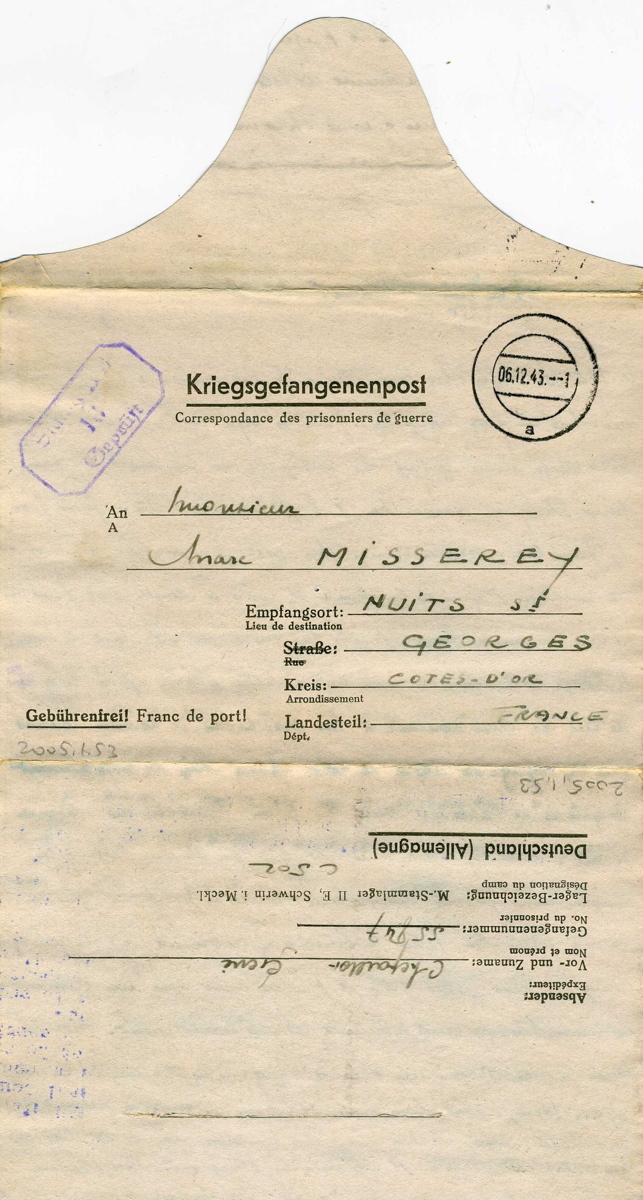 Kriegsgefangenenpost
Correspondance des prisonniers de guerre
06.12.43.--1
a
Geprüft
An Monsieur
A
Marc MISSEREY
Empfangsort: NUITS St
Lieu de destination
Straße: GEORGES
Rue
Kreis: COTES-D'OR
Arrondissement
Gebührenfrei! Franc de port!
Landesteil: FRANCE
Dépt.
2005.1.53
2005.1.53
Absender:
Expéditeur:
Vor- und Zuname: René
Nom et prénom
Gefangenennummer:
No. du prisonnier
Lager-Bezeichnung: M.-Stammlager II E, Schwerin i. Meckl.
Désignation du camp
C 502
Deutschland (Allemagne)